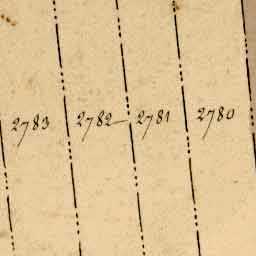 2783 2782 2781 2780